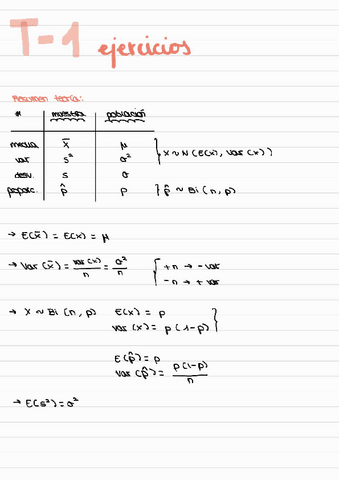 T-1 ejercicios
Resumen teoría:
# muestra población
media x̄ μ
var s² σ² } X ~ N (E(x), Var(x))
desv. s σ
proporc. p̂ p } p̂ ~ Bi (n, p)
→ E(x̄) = E(x) = μ
→ Var(x̄) = Var(x)/n = σ²/n { +n → - var
-n → + var
→ X ~ Bi (n, p) E(x) = p
Var(x) = p (1-p) }
E(p̂) = p
Var(p̂) = p(1-p)/n
→ E(s²) = σ²